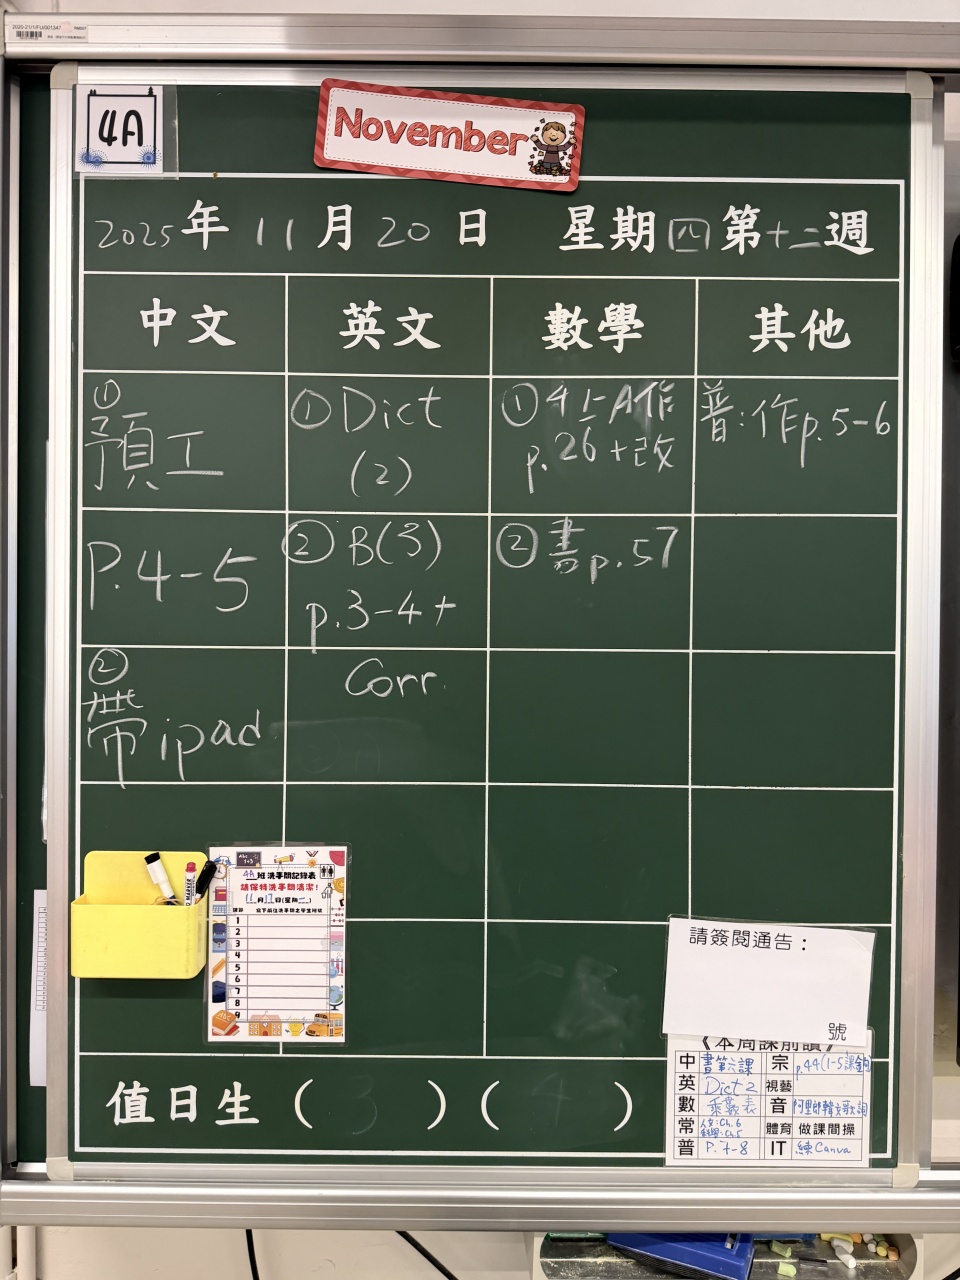 4A
November
2025年11月20日 星期四第十二週
中文 英文 數學 其他
① 預工
P.4-5
② 帶ipad
① Dict
(2)
② B(3)
p.3-4+
Corr.
① 4上A作
p.26+改
② 書p.57
普:作p.5-6
4A班洗手間記錄表
請保持洗手間清潔!
11月17日(星期一)
1
2
3
4
5
6
7
8
9
請簽閱通告:
號
《本周課前讀》
中 書第六課 宗 p.44(1-5課金句)
英 Dict 2 視藝
數 乘數表 音 阿里郎韓文歌詞
常 人文:Ch.6 科學:Ch5 體育 做課間操
普 P.7-8 IT 練Canva
值日生(3)(4)